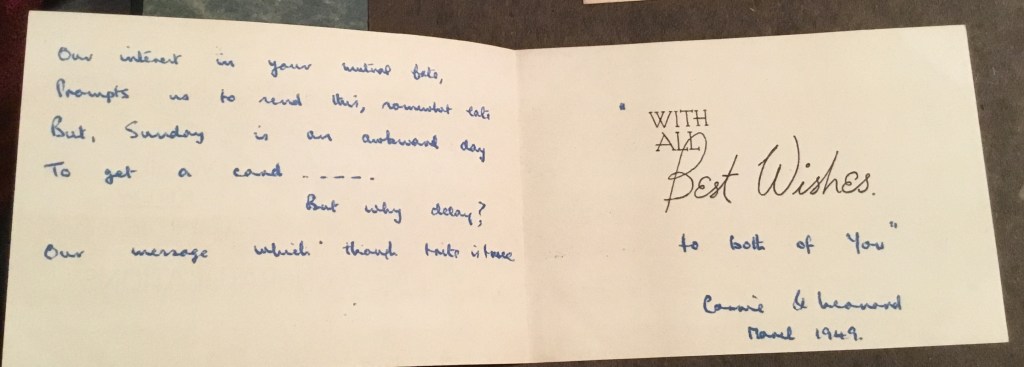 Our interest in your mutual fate,
Prompts us to send this, somewhat late
But, Sunday is an awkward day
To get a card - - - - -.
But why delay?
Our message which though trite is true
"WITH
ALL
Best Wishes.
to both of You"
Connie & Leonard
March 1949.